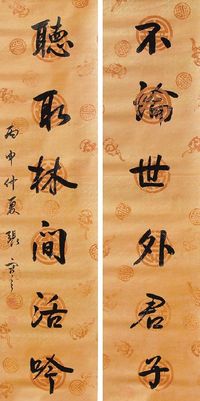 不論世外君子
聽取林間活吟
丙申仲夏張雪